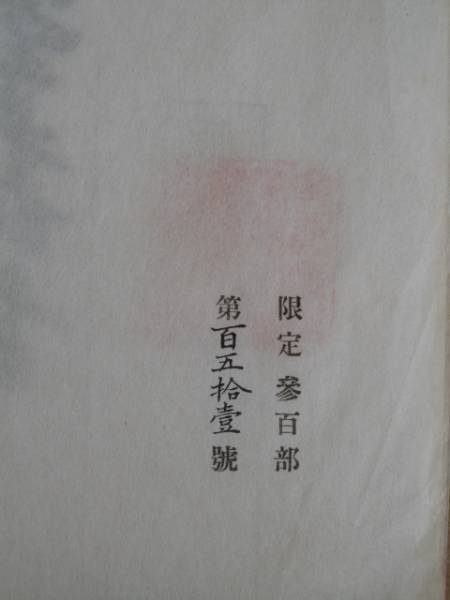 限定参百部
第百五拾壹號